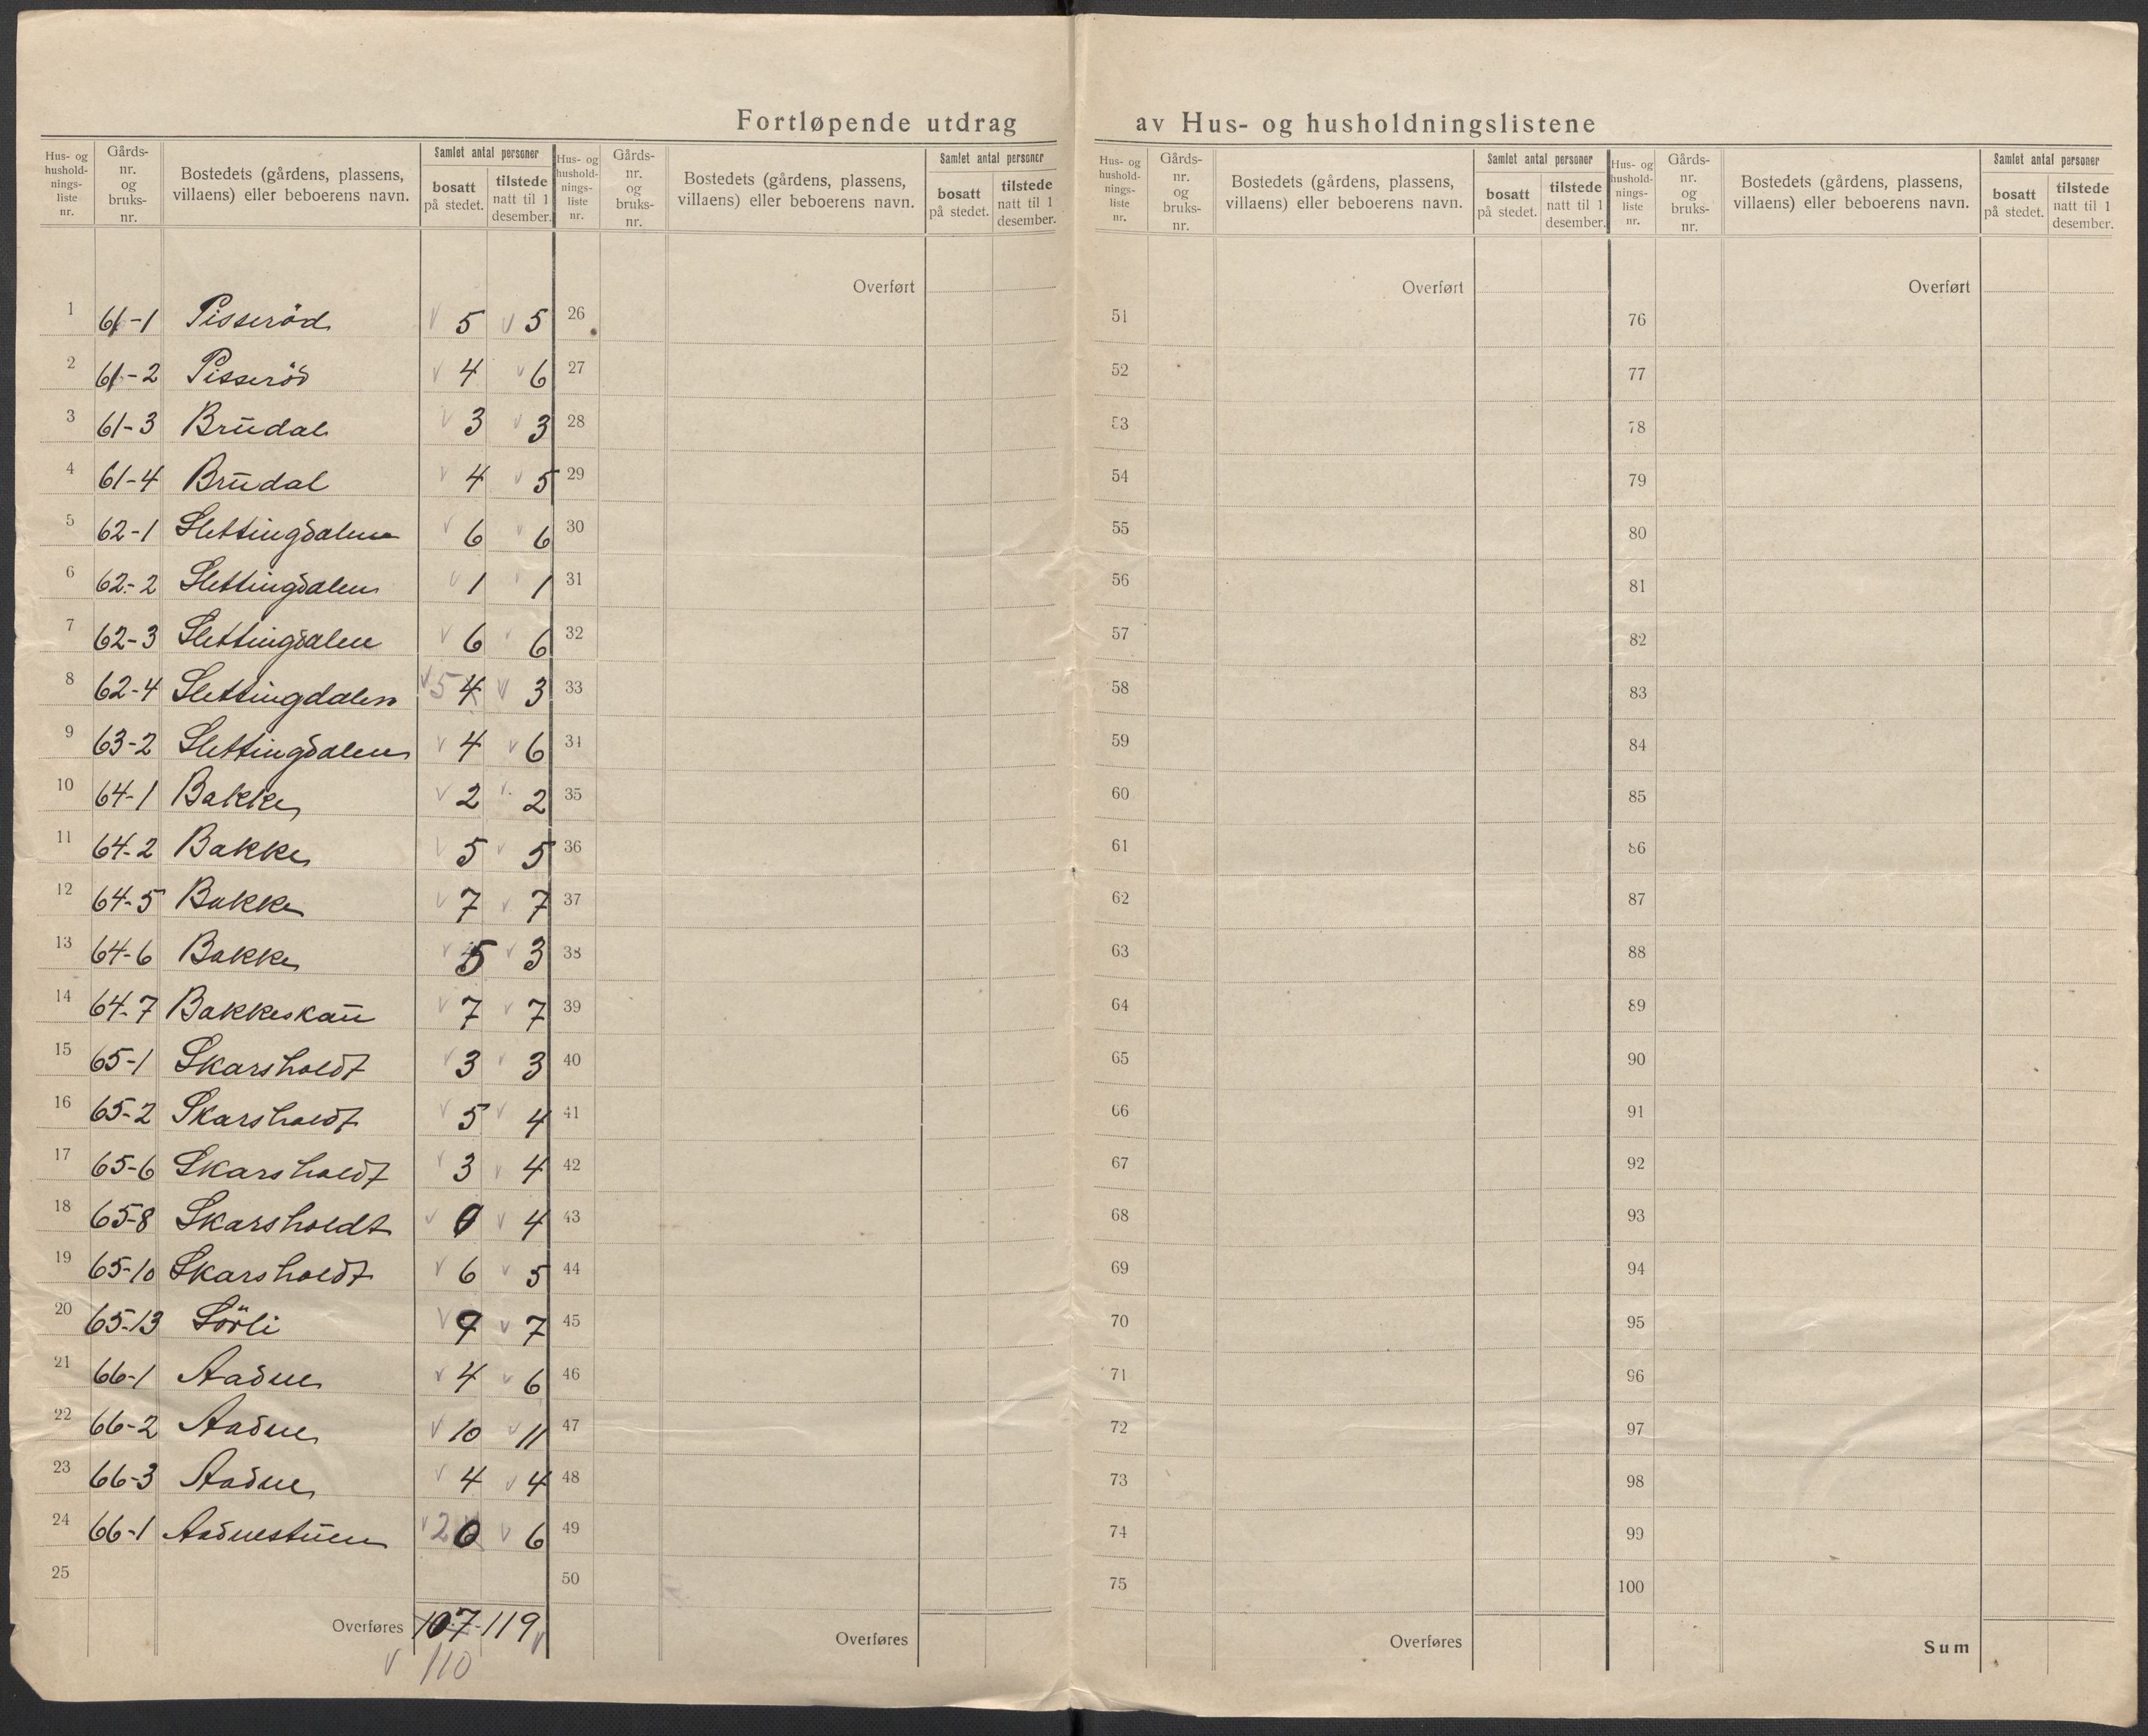 Fortløpende utdrag av Hus- og husholdningslistene
Hus- og hushold- nings- liste nr. Gårds- nr. og bruks- nr. Bostedets (gårdens, plassens, villaens) eller beboerens navn. Samlet antal personer bosatt på stedet. tilstede natt til 1 desember.
Hus- og hushold- nings- liste nr. Gårds- nr. og bruks- nr. Bostedets (gårdens, plassens, villaens) eller beboerens navn. Samlet antal personer bosatt på stedet. tilstede natt til 1 desember.
Hus- og hushold- nings- liste nr. Gårds- nr. og bruks- nr. Bostedets (gårdens, plassens, villaens) eller beboerens navn. Samlet antal personer bosatt på stedet. tilstede natt til 1 desember.
Hus- og hushold- nings- liste nr. Gårds- nr. og bruks- nr. Bostedets (gårdens, plassens, villaens) eller beboerens navn. Samlet antal personer bosatt på stedet. tilstede natt til 1 desember.
Overført Overført Overført
1 61-1 Pisseröd 5 5 26 51 76
2 61-2 Pisseröd 4 6 27 52 77
3 61-3 Brudal 3 3 28 53 78
4 61-4 Brudal 4 5 29 54 79
5 62-1 Slettingdalen 6 6 30 55 80
6 62-2 Slettingdalen 1 1 31 56 81
7 62-3 Slettingdalen 6 6 32 57 82
8 62-4 Slettingdalen 5 4 3 33 58 83
9 63-2 Slettingdalen 4 6 34 59 84
10 64-1 Bakke 2 2 35 60 85
11 64-2 Bakke 5 5 36 61 86
12 64-5 Bakke 7 7 37 62 87
13 64-6 Bakke 5 3 38 63 88
14 64-7 Bakkeskau 7 7 39 64 89
15 65-1 Skarsholdt 3 3 40 65 90
16 65-2 Skarsholdt 5 4 41 66 91
17 65-6 Skarsholdt 3 4 42 67 92
18 65-8 Skarsholdt 4 43 68 93
19 65-10 Skarsholdt 6 5 44 69 94
20 65-13 Sörli 9 7 45 70 95
21 66-1 Aadne 4 6 46 71 96
22 66-2 Aadne 10 11 47 72 97
23 66-3 Aadne 4 4 48 73 98
24 66-1 Aadnestuen 2 0 6 49 74 99
25 50 75 100
Overføres 107-119 Overføres Overføres Sum
110